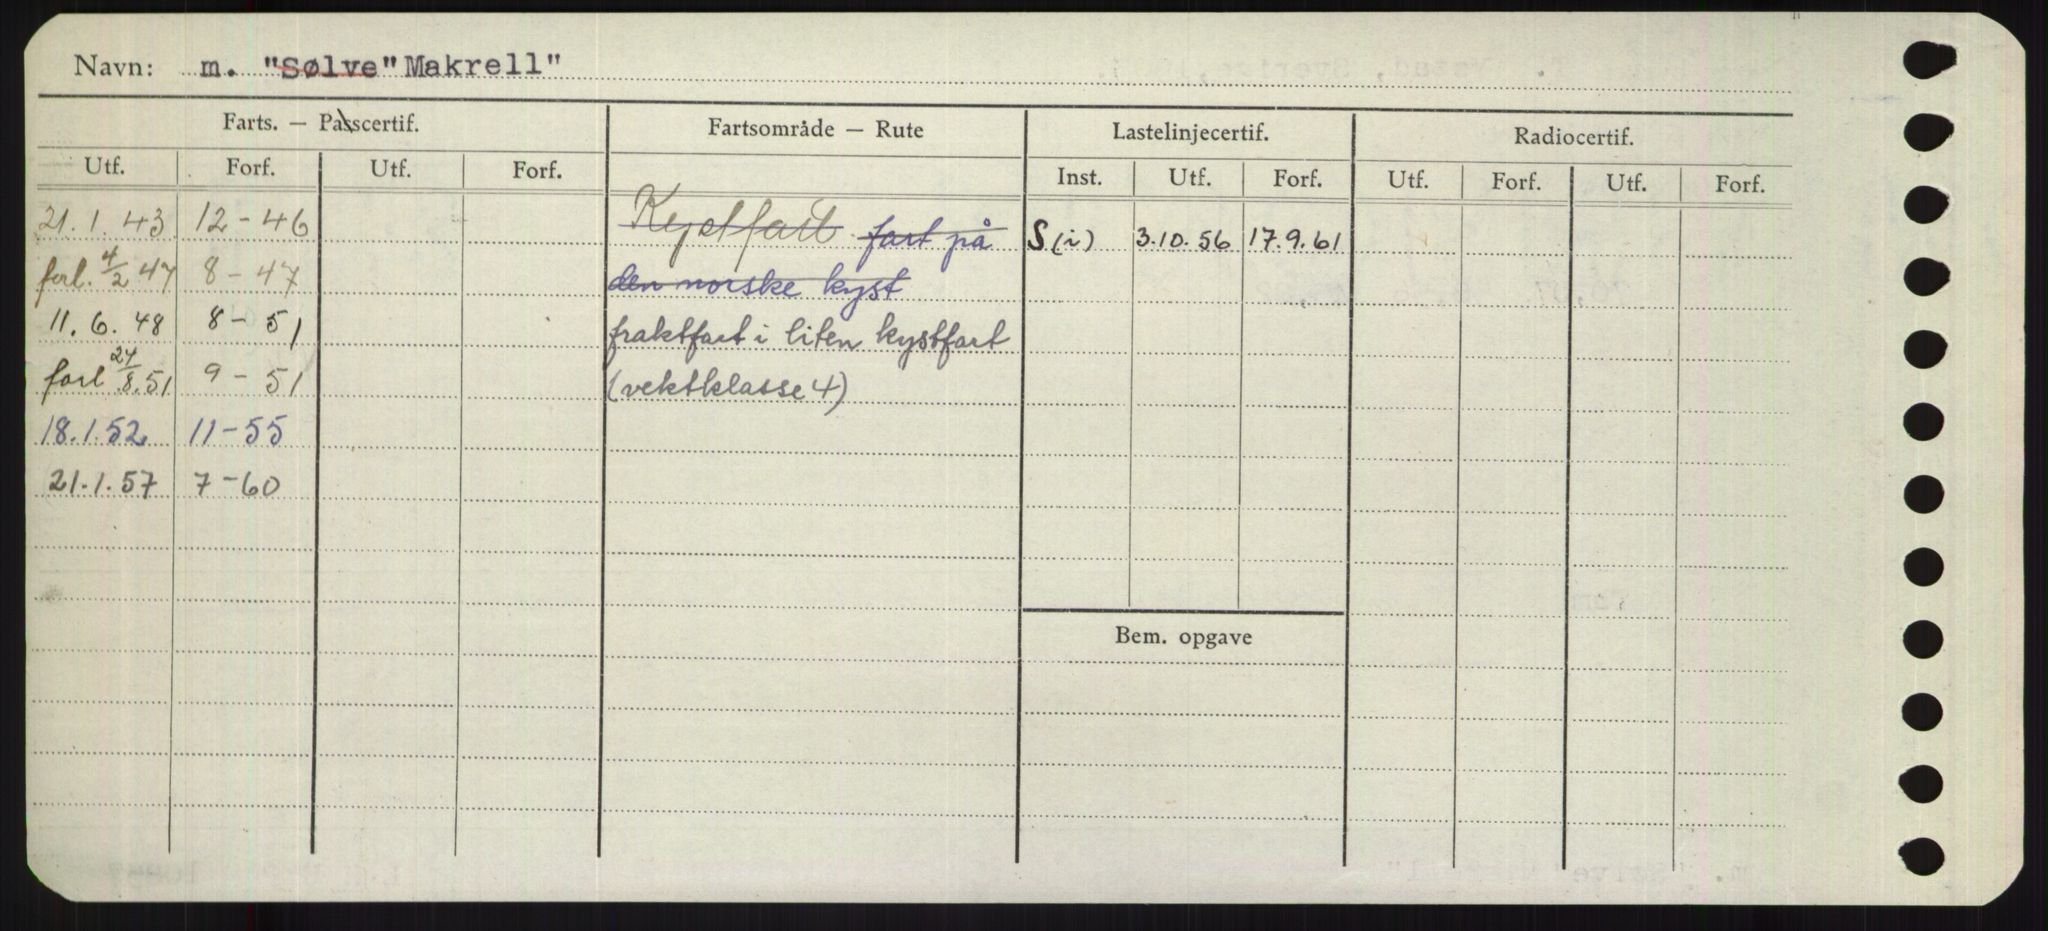 Navn: m. "Sølve" Makrell"
Farts. — Passcertif. Fartsområde — Rute Lastelinjecertif. Radiocertif.
Utf. Forf. Utf. Forf. Inst. Utf. Forf. Utf. Forf. Utf. Forf.
21.1.43 12-46 Kystfart fart på S (i) 3.10.56 17.9.61
forl. 4/2 47 8-47 den norske kyst
11.6.48 8-51 fraktfart i liten kystfart
forl 24/8.51 9-51 (vektklasse 4)
18.1.52 11-55
21.1.57 7-60
Bem. opgave